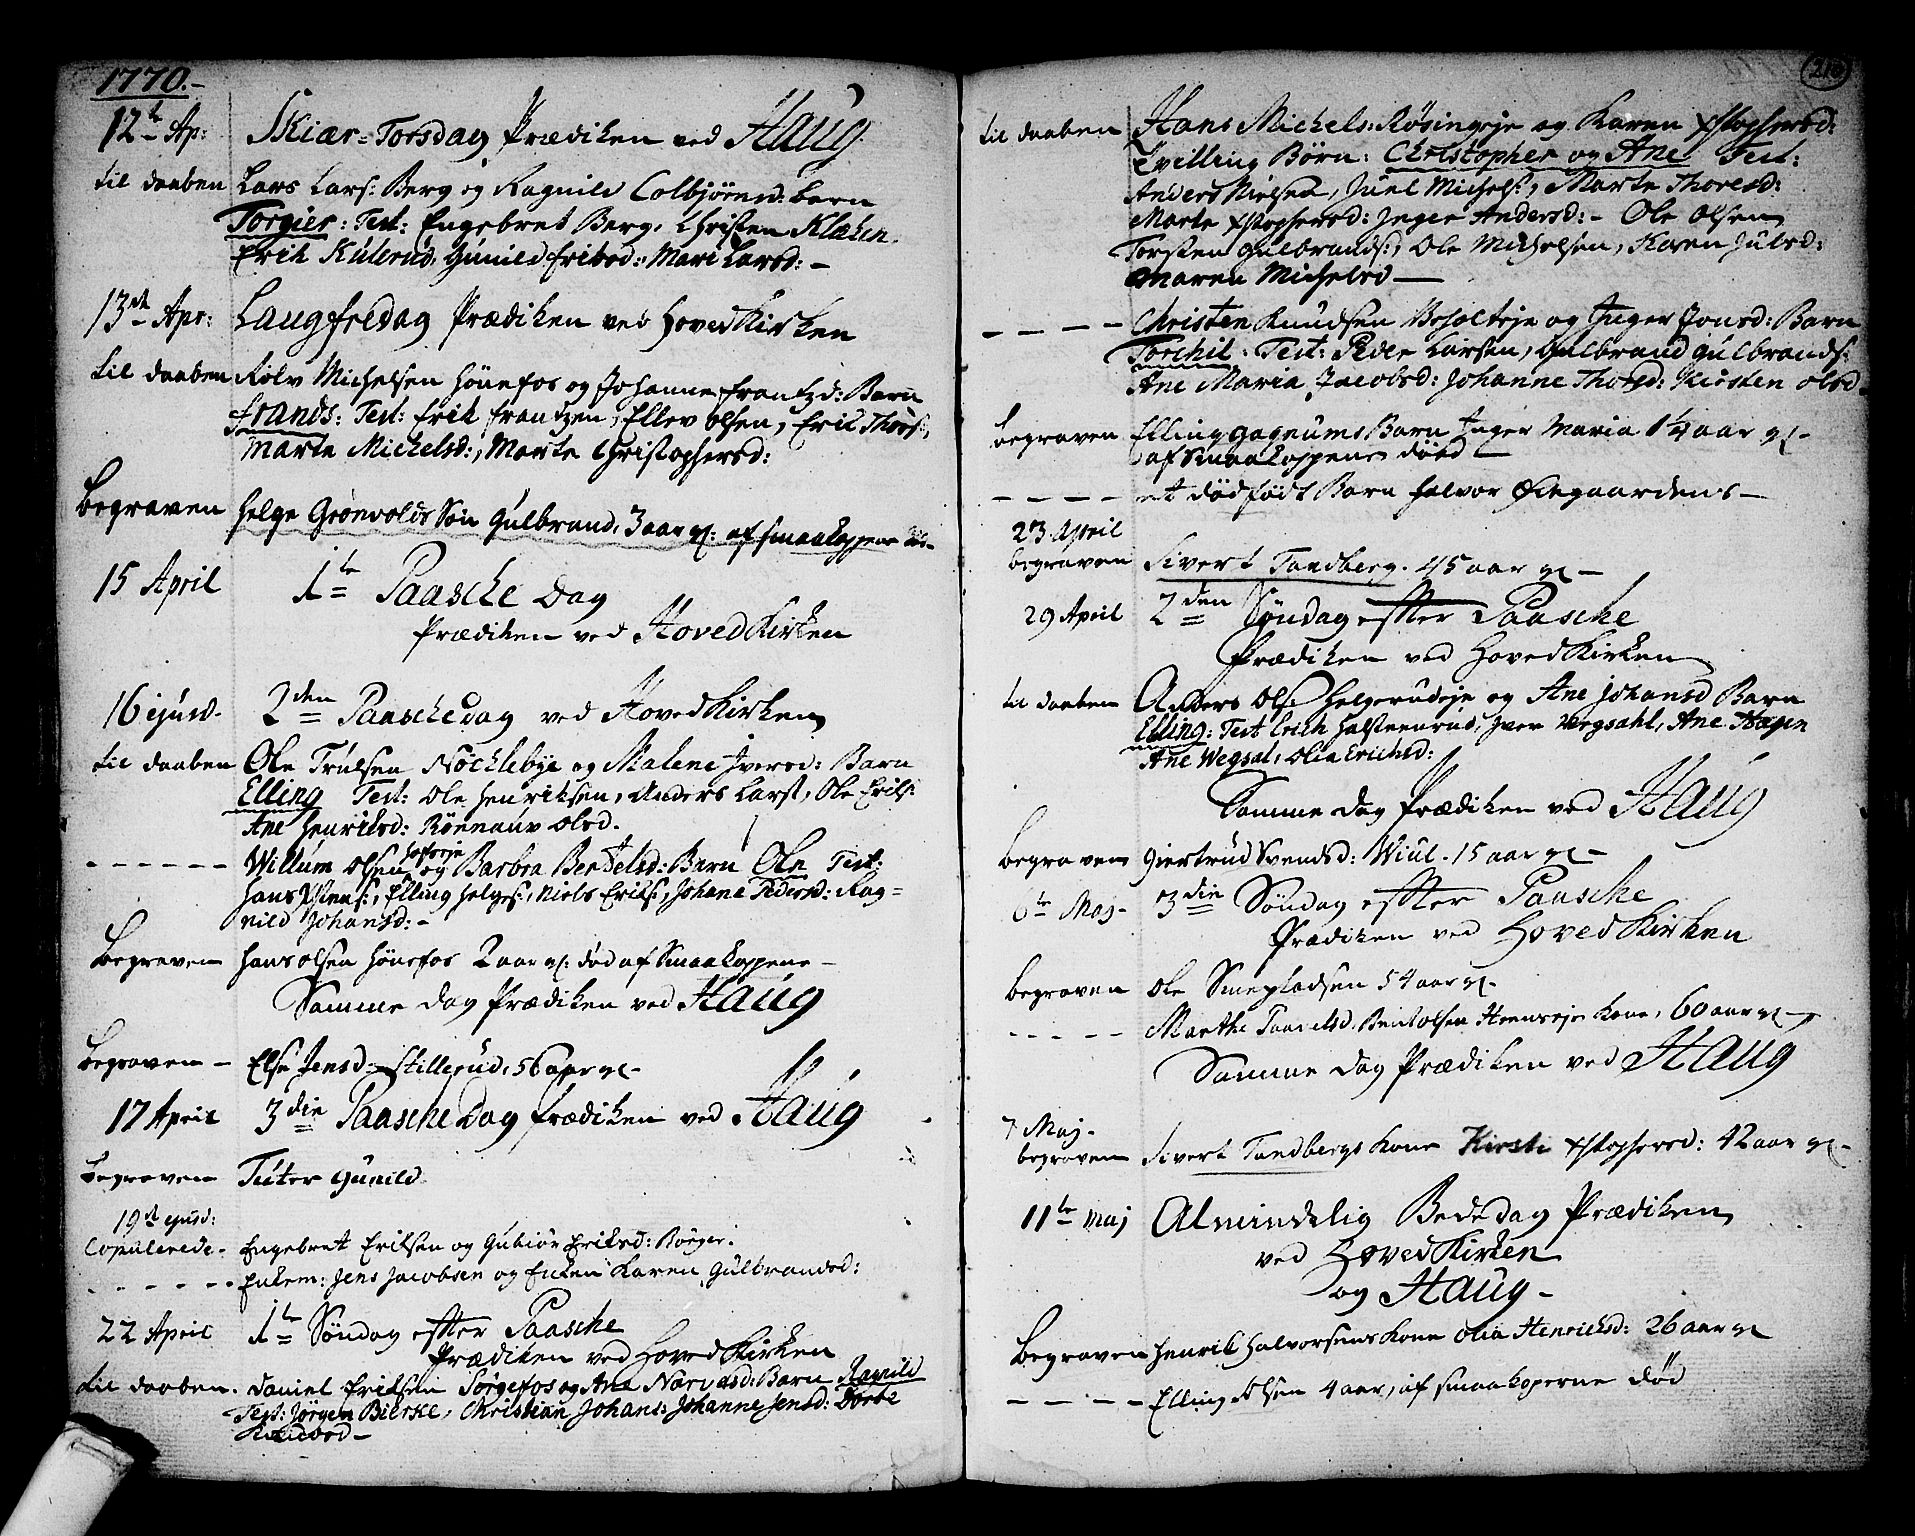 1770.-
12te Ap: Skiær-Torsdag Prædiken ved Haug
til daaben Lars Lars: Berg og Ragnild Colbjørnsd: barn
Torgier: Test: Engebret Berg, Christen Klæken
Erik Kulerud, Gunild Eriksd: Mari Larsd: -
13de Apr: Langfredag Prædiken ved Hoved Kirken
til daaben Rolv Michelsen Hønefos og Johanne Frantzd: Barn
Frands: Test: Erik Frantzen, Ellev Olsen, Erik Thors:,
Marte Michelsd:, Marte Christophersd:
Begraven Helge Grønvolds Søn Gulbrand, 3 aar gl: af smaakoppene
15 April 1te Paasche Dag
Prædiken ved Hoved Kirken
16 ejusd. 2den Paaschedag ved Hoved Kirken
til daaben Ole Trulsen Nøcklebye og Malene Iversd: Barn
Elling Test: Ole Henriksen, Anders Larss, Ole Eriks:
Ane Henriksd: Rønnauv Olsd.
- - - - - - Willum Olsen Hofseje og Barbra Bentelsd: Barn Ole Test:
Hans, Elling Helges:, Niels Eriks:, Johana Pedersd: Rag=
nild Johansd: -
Begraven Hans Olsen Hønefos 2 aar gl: død af Smaakoppene -
Samme dag Prædiken ved Haug
Begraven - Else Jensd: Stillerud, 56 aar gl -
17 April 3die Paasche Dag Prædiken ved Haug
Begraven Tuter Gunild
19de ejusd:
Copulerede - Engebret Eriksen og Gubiør Eriksd: Børger.
- - - - - - Enkem: Jens Jacobsen og Enken Karen Gulbrandsd:
22 April 1te Søndag effter Paasche
Prædiken ved Hoved Kirken
til daaben. Daniel Eriksen Sørgefos og Ane Narvesd: Barn Ragnild
Test: Jørgen Bierke, Christian Johans: Johanne Jensd: Dorte
Knudsd -
til daaben Hans Michels: Røsingeje og Karen Xstophersd:
Tvilling Børn: Christopher og Ane Test:
Anders Nielsen, Juel Michels:, Marte Thoresd:
Marte Xstophersd: Inger Andersd: - Ole Olsen
Torsten Gulbrands:, Ole Michelsen, Karen Julsd:
Maren Michelsd -
- - - - Christen Knudsen Vesolteje og Inger Jonsd: Barn
Torchil. Test: Peder Larsen, Gulbrand Gulbrands:
Ane Maria Jacobsd: Johanne Thorsd: Kirsten Olsd -
begraven Elling Gagnums Barn Inger Maria 1 1/4 aar gl -
af Smaakoppene død -
- - - - et dødfødt Barn Halvor Øiegaardens -
23 April
begraven Sivert Tandberg. 45 aar gl -
29 April 2den Søndag effter Paasche
Prædiken ved Hoved Kirken
til daaben Anders Ols: Helgerudeje og Ane Johansd Barn
Elling: Test Erich Halsteenrud, Iver Wegsahl, Ane Hagen
Ane Wegsal, Olia Erichsd:
Samme dag Prædiken ved Haug
begraven Giertrud Svendsd: Wiul. 15 aar gl -
6te Maj - 3die Søndag effter Paasche
Prædiken ved Hoved Kirken
begraven Ole Smepladsen 54 aar gl -
- - - - - Marthe Paavelsd, Bent Olsen Heenseje Kone, 60 aar gl -
Samme dag Prædiken ved Haug
7 Maj -
begraven Sivert Tandbergs Kone Kirsti Xstophersd: 42 aar gl -
11te Maj Almindelig Bededag Prædiken
ved Hoved Kirken
og Haug -
Begraven Henrik Halvorsens Kone Olia Henriksd: 26 aar gl
- - - - Elling Olsen 4 aar, af smaakoperne død